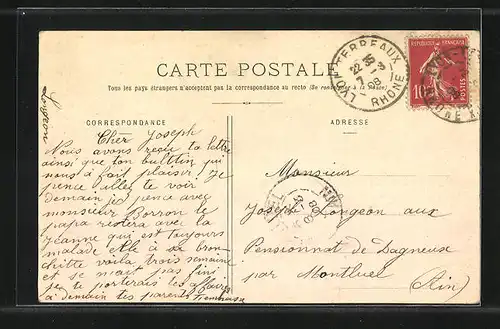 CARTE POSTALE
Tous les pays étrangers n'acceptent pas la correspondance au recto (Se renseigner à la Poste)
CORRESPONDANCE
ADRESSE
LYON-TERREAUX
RHÔNE
REPUBLIQUE FRANÇAISE
10
POSTES
Cher Joseph
Nous avons reçu ta lettre
ainsi que ton bulttin qui
nous à fait plaisir je
pence aller te voir
demain je pence avec
monsieur Borron le
papa restera avec la
Jeanne qui est toujours
malade elle à sa bron
chitte voila trois semaine
et se n'ait pas fini
je te porterais les affairs
à demain tes parents
Longeon
Monsieur
Joseph Longeon aux
Pensionnat de Dagneux
par Montluel
(Ain)